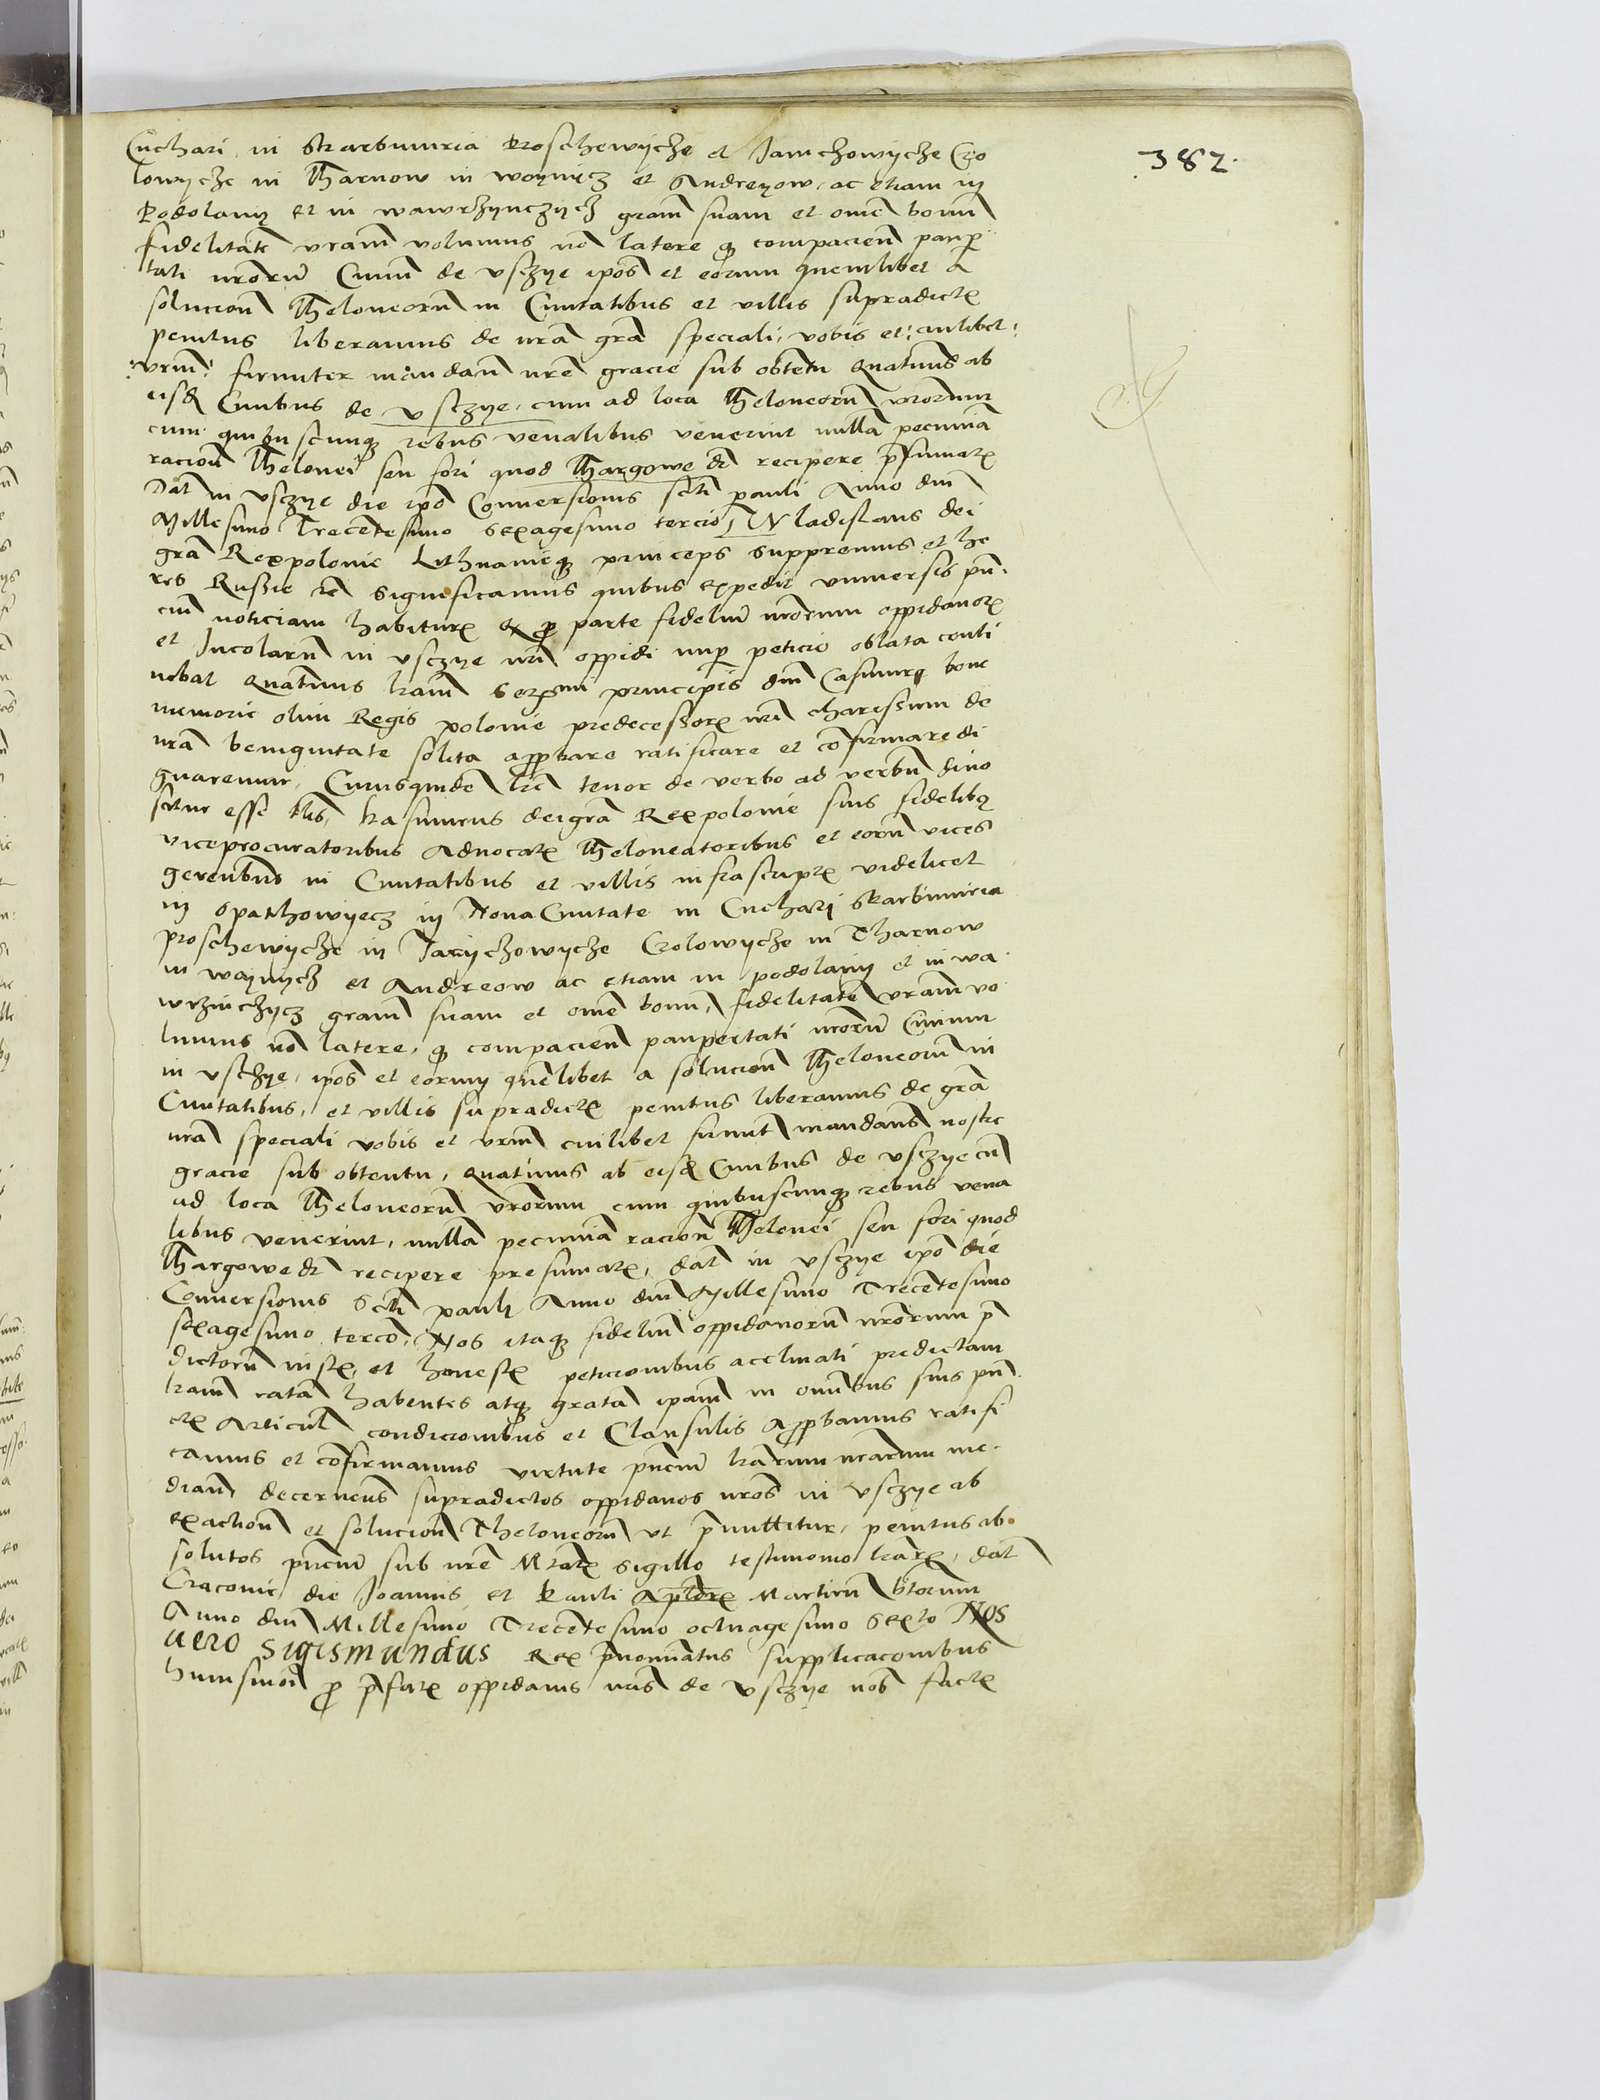 382.
Cuchari in Skarbimiria Proschewycze et Jamchowycze Czo
lowycze in Tharnow in woynicz et Andreyow, ac etiam in
Podolany et in wawrzynczycz gram suam et ome bonu
fidelitate vram volumus no latere q compacien pauper
tati nrorum Civiu de vsczye ipos et eorum quemlibet a
solucion Theloneoru in Civitatibus et villis supradict
penitus liberamus de nra gra speciali, vobis et cuilibet
vrm firmiter mandan nre gracie sub obtentu Quatinus ab
eisd Civibus de vsczye, cum ad loca Theloneoru vrorum
cum quibuscunq rebus venalibus venerint nulla pecunia
racion Thelonei seu fori quod Thargowe dr recipere psumat
Dat in vsczye die ipo Conversionis scti pauli Anno dni
Millesimo Trecentesimo sexagesimo tercio, Wladislaus dei
gra Rex polonie Lithuanieq princeps suppremus et he
res Russie etc significamus quibus expedit universis pn
cium noticiam habitur Qz pro parte fideliu nrorum oppidanor
et Incolaru in vsczye nri oppidi nup peticio oblata conti
nebat Quatinus lram Serenmi principis dni Casimiri bone
memorie olim Regis polonie predecessor nri charissimi de
nra benignitate solita approbare ratificare et confirmare di
gnaremur, Cuiusquide lre tenor de verbo ad verbu dino
scitur esse tlis, Kasimirus dei gra Rex polonie suis fidelibq
viceprocuratoribus Advocat Theloneatoribus et eoru vices
gerentibus in Civitatibus et villis infrascript videlicet
in Opathowyecz in Nova Civitate in Cuchary Skarbimiria
proschewycze in Jarychowycze Czolowycze in Tharnow
in woynycz et Andreow ac etiam in podolany et in wa
wrzinczycz gram suam et ome bonu, fidelitate vram vo
lumus no latere, q compacien paupertati nroru Civium
in vsczye, ipos et eorum quelibet a solucion Theloneoru in
Civitatibus, et villis supradict penitus liberamus de gra
nra speciali vobis et vrm cuilibet firmit mandans nostre
gracie sub obtentu, Quatinus ab eisd Civibus de vsczye cu
ad loca Theloneoru vrorum cum quibuscunq rebus vena
libus venerint, nulla pecunia racion Thelonei seu fori quod
Thargowe dr recipere presumat, dat in vsczye ipo die
Conversionis Scti pauli Anno dni Millesimo Trecentesimo
sexagesimo tercio, Nos itaq fideliu oppidanoru nrorum p
dictoru iust et honest peticionibus acclinati predictam
lram rata habentes atq grata ipam in omibus suis pun
ct Articul condicionibus et Clausulis Approbamus ratifi
camus et confirmamus virtute pncium lrarum nrarum me
dian, decernens supradictos oppidanos nros in vsczye ab
exaction et solucion Theloneoru ut pmittitur, penitus ab
solutos pncium sub nre Mtat sigillo testimonio lrar, dat
Cracovie die Joannis et Pauli Aplor Martiru btorum
Anno dni Millesimo Trecentesimo octuagesimo sexto Nos
vero Sigismundus Rex pnominatus supplicacionibus
huiusmoi p pfat oppidanis nris de vsczye nob fact